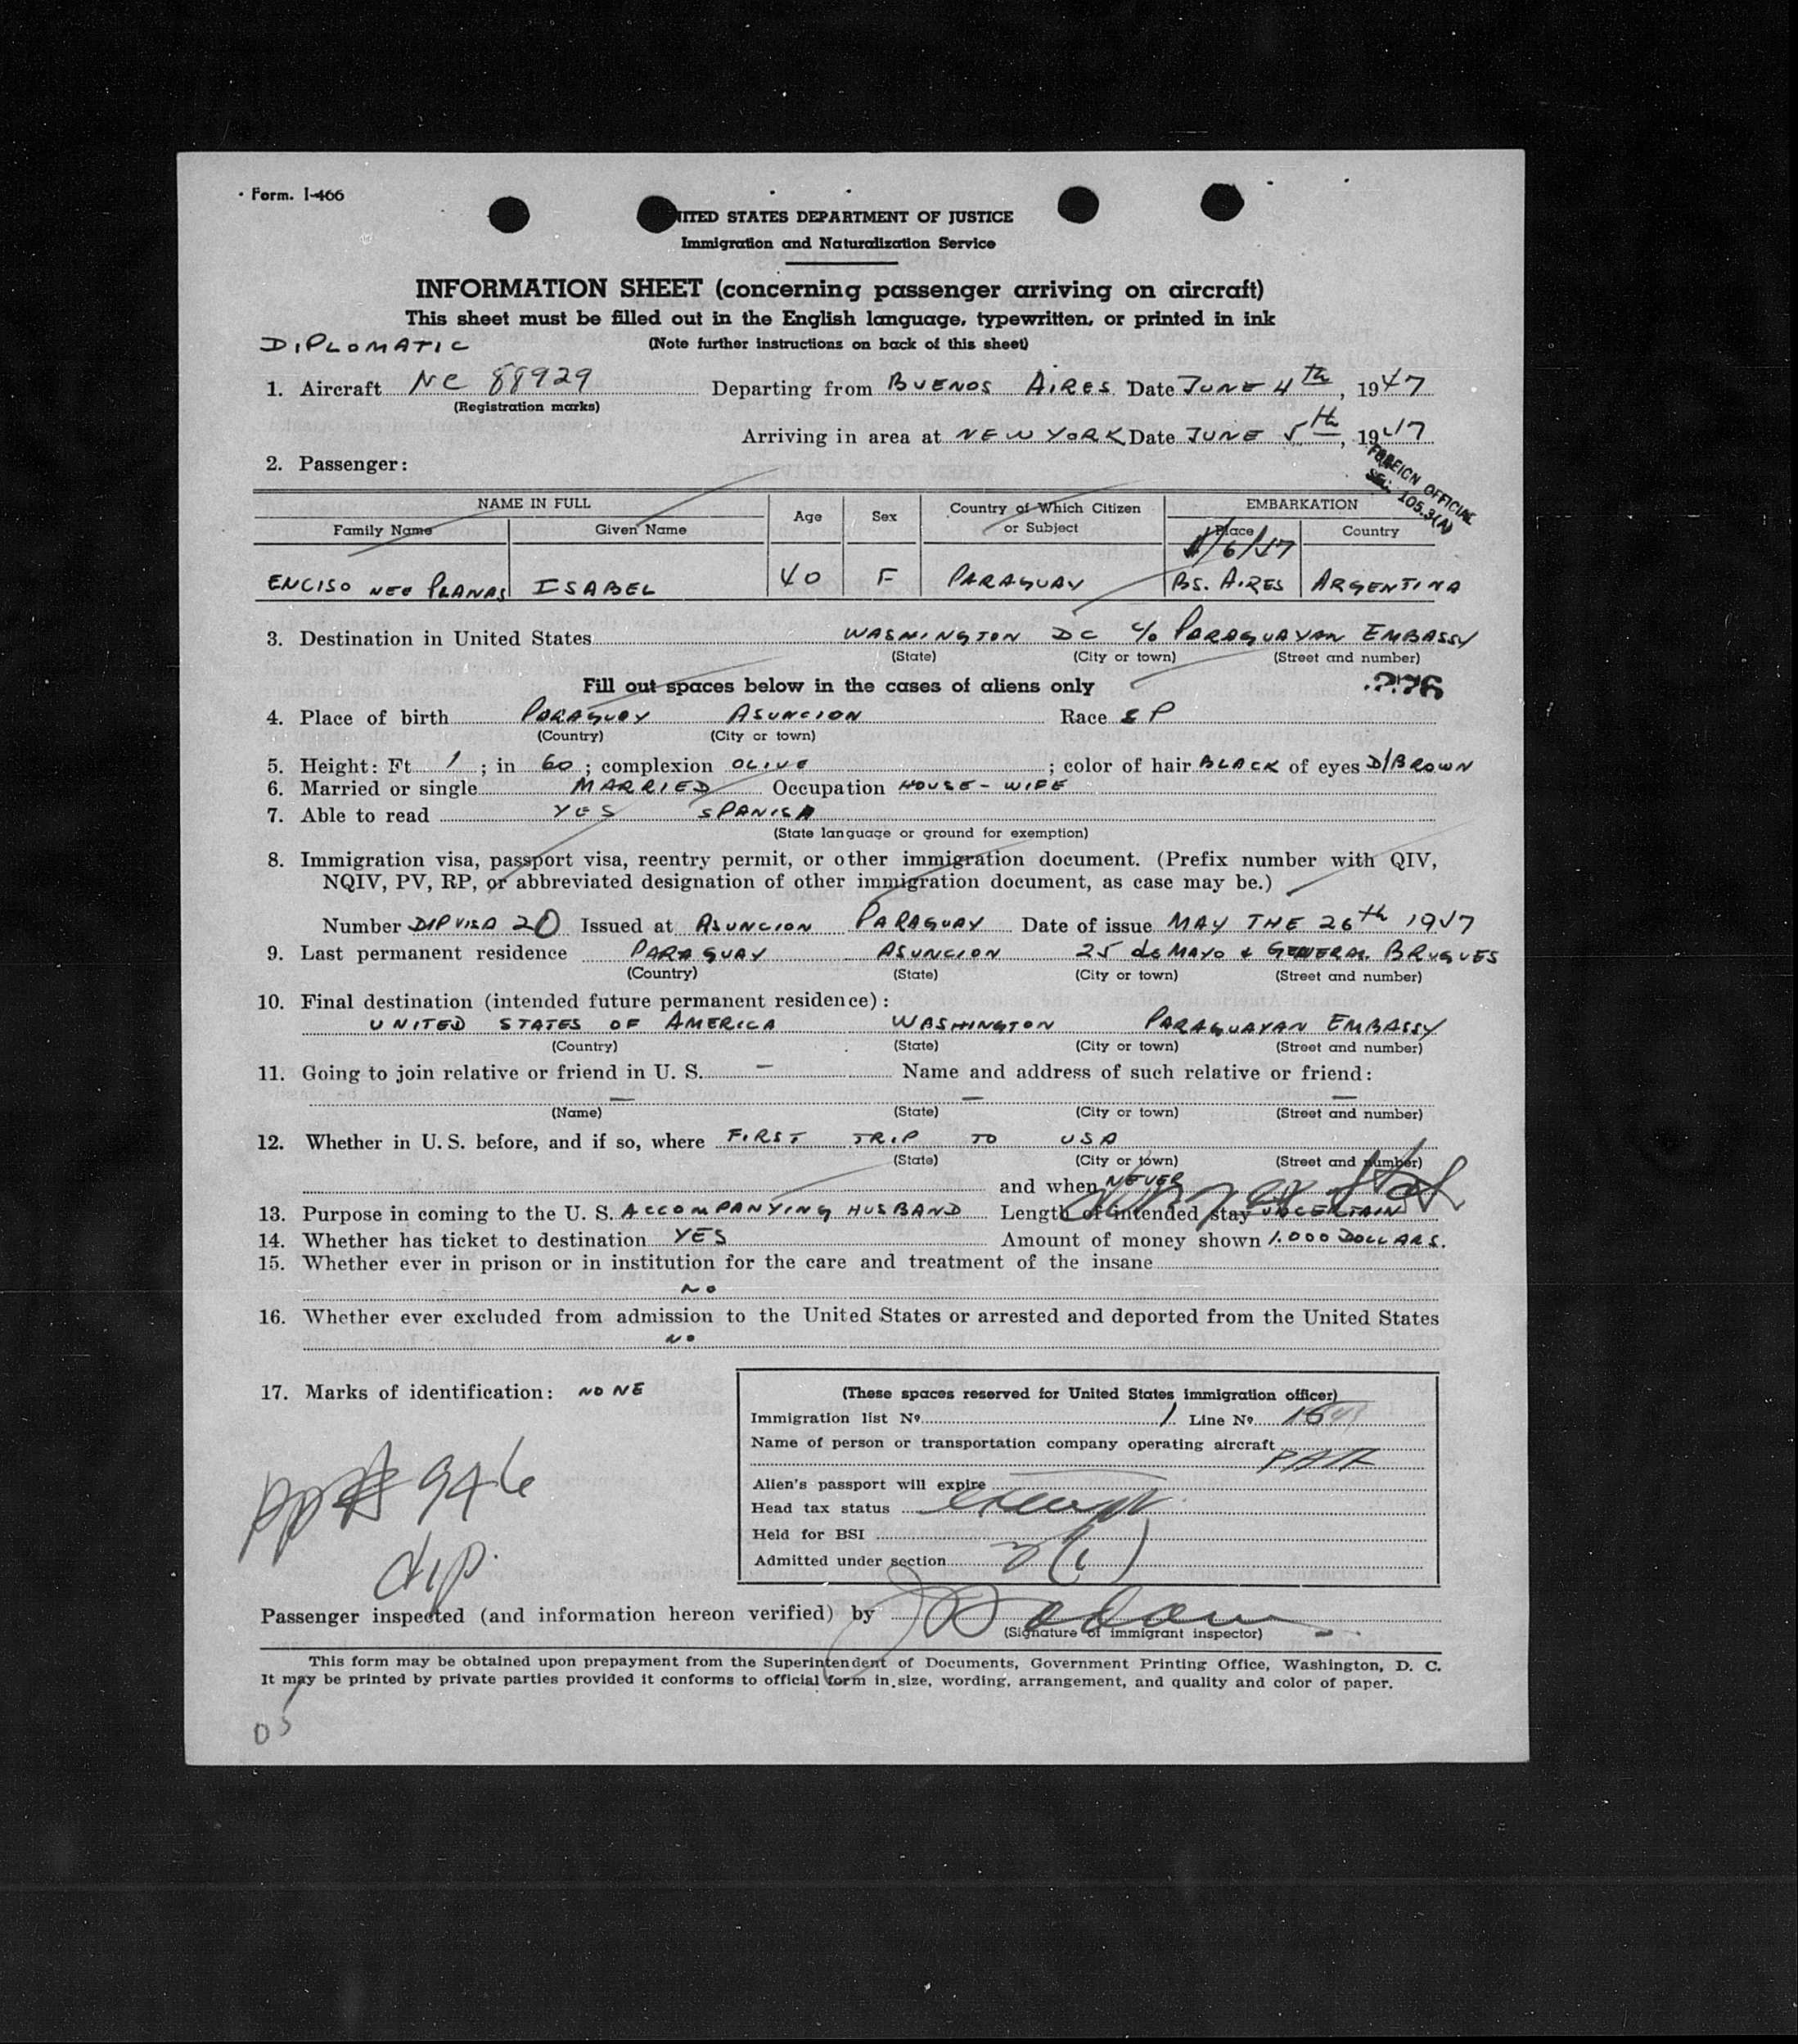 Form. I-466
UNITED STATES DEPARTMENT OF JUSTICE
Immigration and Naturalization Service
INFORMATION SHEET (concerning passenger arriving on aircraft)
This sheet must be filled out in the English language, typewritten, or printed in ink
DIPLOMATIC (Note further instructions on back of this sheet)
1. Aircraft NC 88929 Departing from BUENOS AIRES Date JUNE 4th, 1947
(Registration marks)
Arriving in area at NEW YORK Date JUNE 5th, 1947
2. Passenger:
FOREIGN OFFICIAL
SEC. 105.3(A)
NAME IN FULL Age Sex Country of Which Citizen or Subject EMBARKATION
Family Name Given Name Place Country
ENCISO NEE PLANAS ISABEL 40 F PARAGUAY BS. AIRES ARGENTINA
3. Destination in United States WASHINGTON DC c/o PARAGUAYAN EMBASSY
(State) (City or town) (Street and number)
Fill out spaces below in the cases of aliens only
4. Place of birth PARAGUAY ASUNCION Race SP
(Country) (City or town)
5. Height: Ft 1 ; in 60 ; complexion OLIVE ; color of hair BLACK of eyes D/BROWN
6. Married or single MARRIED Occupation HOUSE-WIFE
7. Able to read YES SPANISH
(State language or ground for exemption)
8. Immigration visa, passport visa, reentry permit, or other immigration document. (Prefix number with QIV,
NQIV, PV, RP, or abbreviated designation of other immigration document, as case may be.)
Number DIP VISA 20 Issued at ASUNCION PARAGUAY Date of issue MAY THE 26th 1947
9. Last permanent residence PARAGUAY ASUNCION 25 de MAYO & GENERAL BRUGUES
(Country) (State) (City or town) (Street and number)
10. Final destination (intended future permanent residence):
UNITED STATES OF AMERICA WASHINGTON PARAGUAYAN EMBASSY
(Country) (State) (City or town) (Street and number)
11. Going to join relative or friend in U. S. — Name and address of such relative or friend:
— — —
(Name) (State) (City or town) (Street and number)
12. Whether in U. S. before, and if so, where FIRST TRIP TO USA
(State) (City or town) (Street and number)
and when NEVER
13. Purpose in coming to the U. S. ACCOMPANYING HUSBAND Length of intended stay UNCERTAIN
14. Whether has ticket to destination YES Amount of money shown 1.000 DOLLARS.
15. Whether ever in prison or in institution for the care and treatment of the insane
NO
16. Whether ever excluded from admission to the United States or arrested and deported from the United States
NO
17. Marks of identification: NONE
(These spaces reserved for United States immigration officer)
Immigration list No 1 Line No
Name of person or transportation company operating aircraft
PAA
Alien's passport will expire
Head tax status exempt
Held for BSI
Admitted under section 3(1)
pp# 946
dip.
Passenger inspected (and information hereon verified) by
(Signature of immigrant inspector)
This form may be obtained upon prepayment from the Superintendent of Documents, Government Printing Office, Washington, D. C.
It may be printed by private parties provided it conforms to official form in size, wording, arrangement, and quality and color of paper.